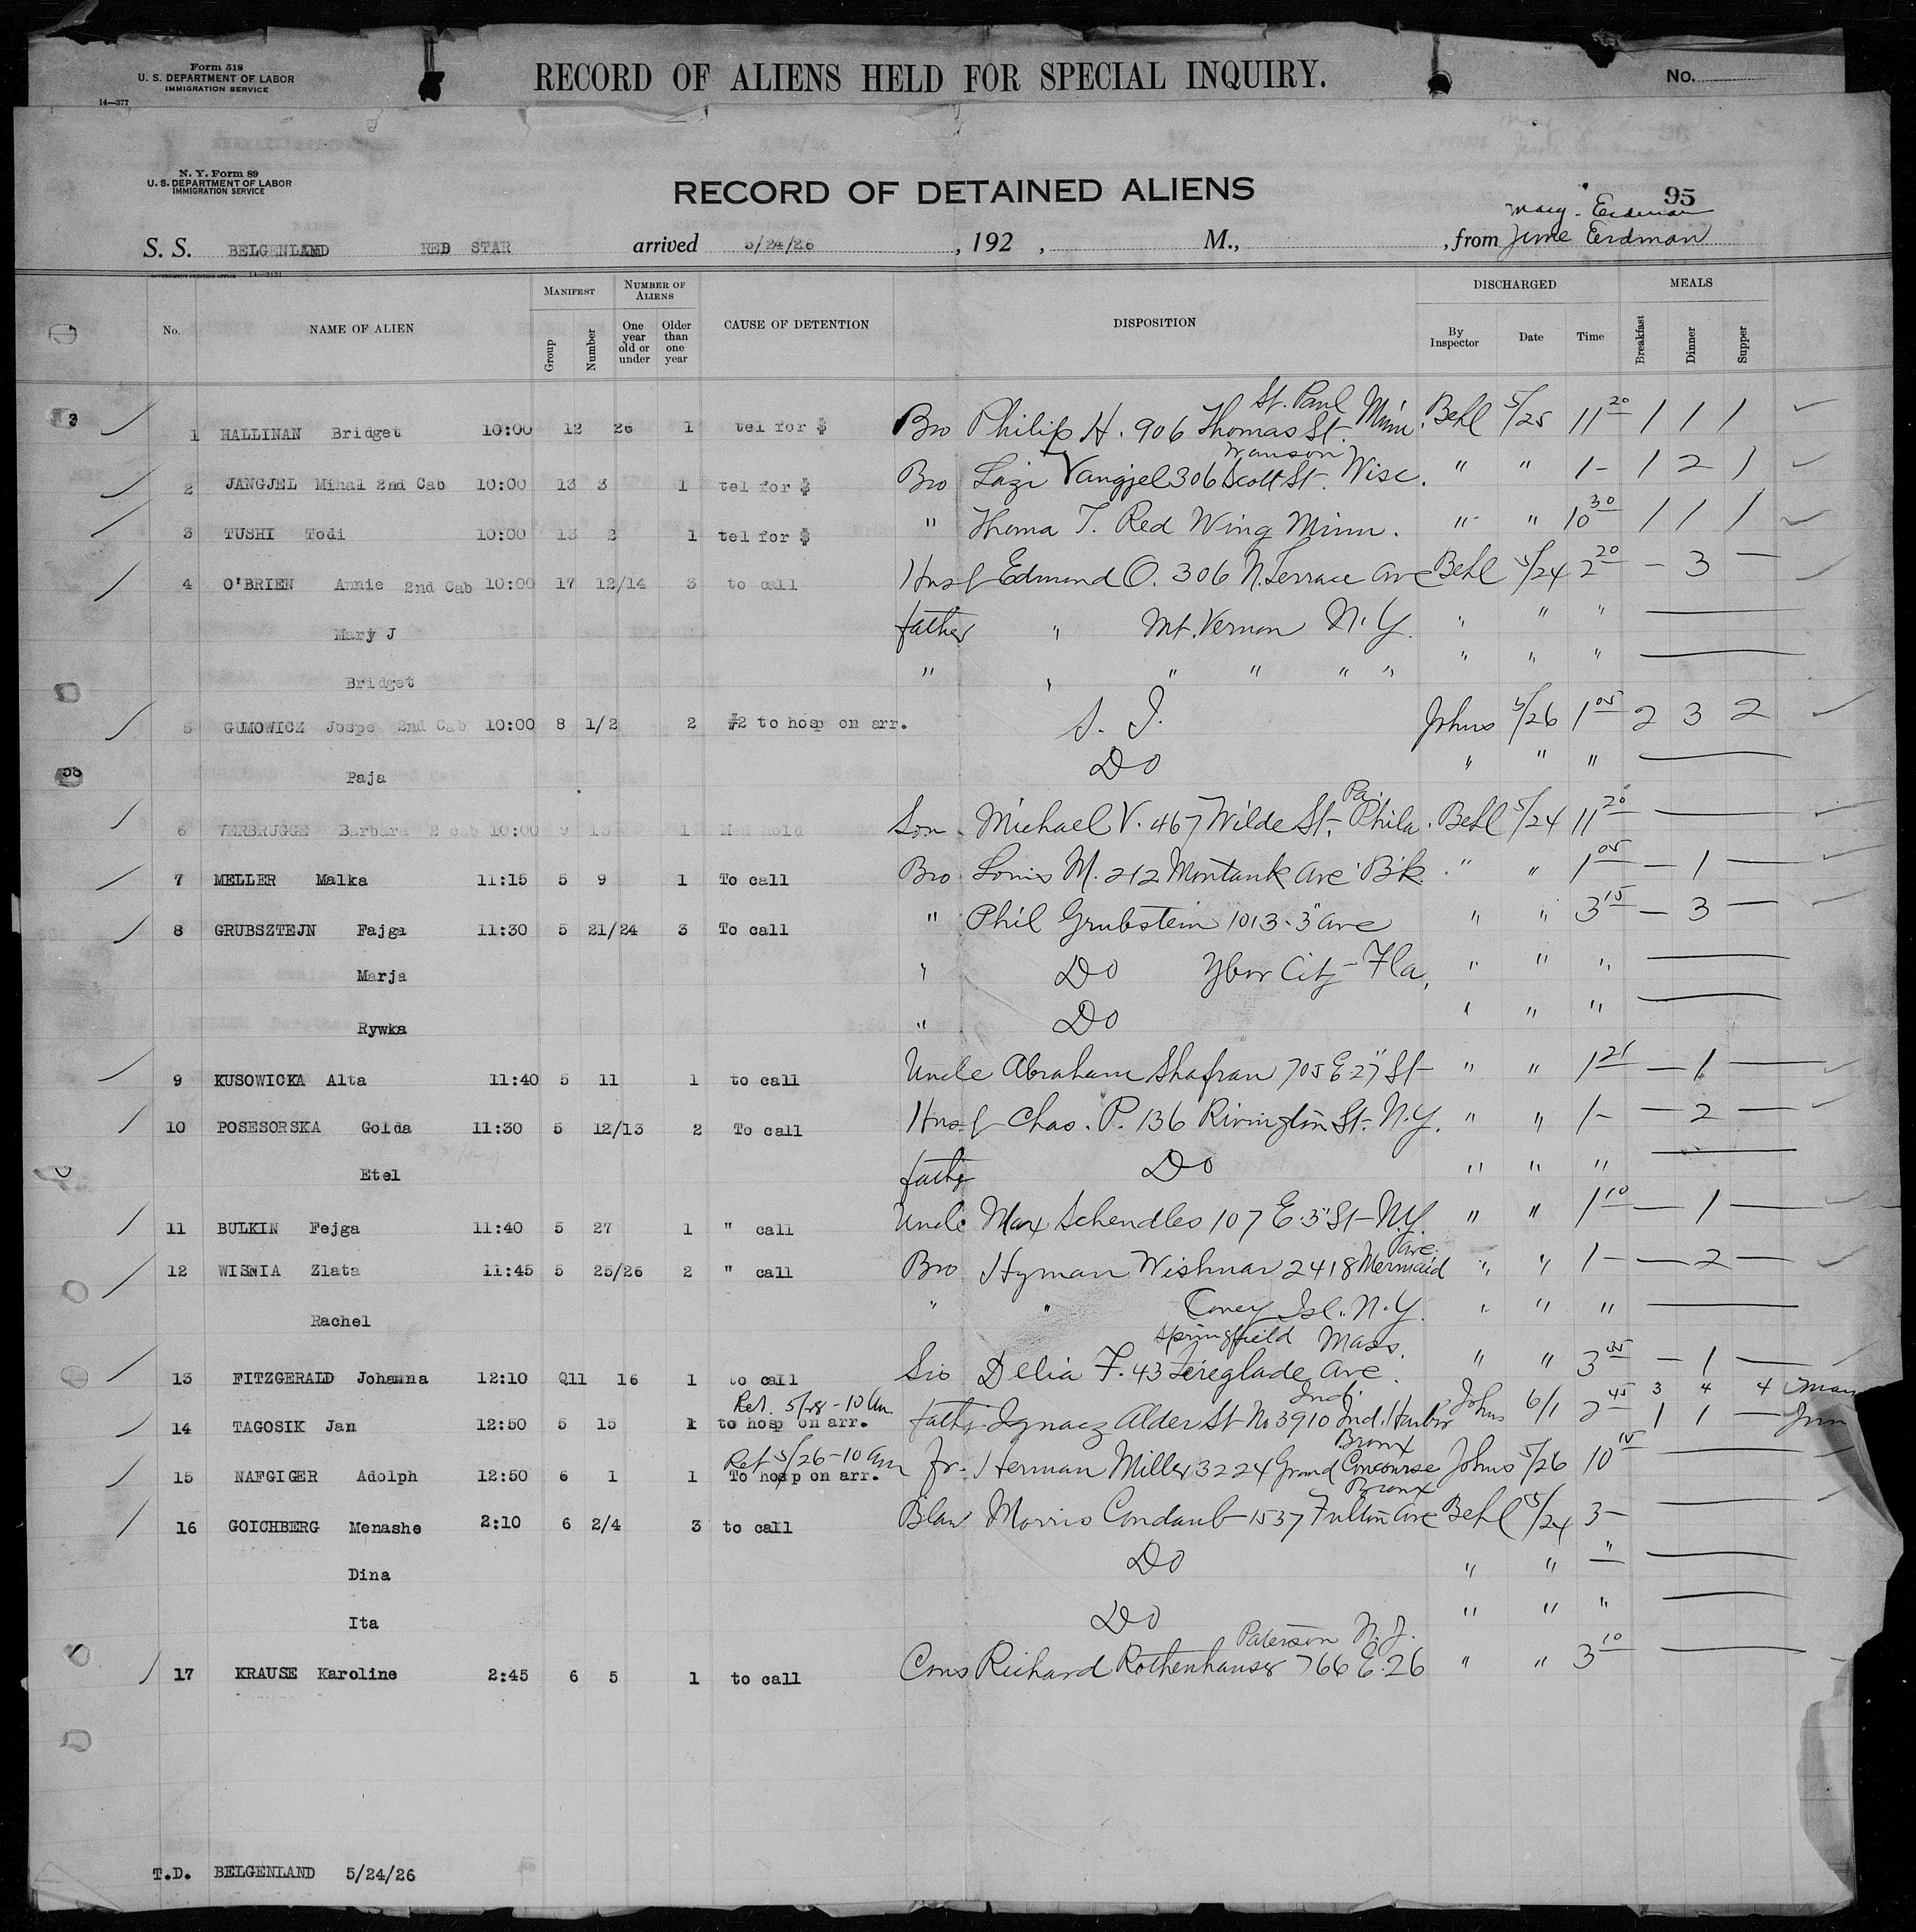 Form 518
U. S. DEPARTMENT OF LABOR
IMMIGRATION SERVICE
14—377
RECORD OF ALIENS HELD FOR SPECIAL INQUIRY.
No.
N. Y. Form 89
U. S. DEPARTMENT OF LABOR
IMMIGRATION SERVICE
RECORD OF DETAINED ALIENS
95
S. S. BELGENLAND RED STAR arrived 5/24/26, 192 , M., from
No. NAME OF ALIEN MANIFEST Group Number NUMBER OF ALIENS One year old or under Older than one year CAUSE OF DETENTION DISPOSITION DISCHARGED By Inspector Date Time MEALS Breakfast Dinner Supper
St. Paul
1 HALLINAN Bridget 10:00 12 26 1 tel for $ Bro Philip H. 906 Thomas St. Minn. Behl 5/25 11 20 1 1 1
2 JANGJEL Mihal 2nd Cab 10:00 13 3 1 tel for $ Bro Lazi Vangjel 306 Scott St. Wisc. " " 1- 1 2 1
3 TUSHI Todi 10:00 13 2 1 tel for $ " Thoma T. Red Wing Minn. " " 10 30 1 1 1
4 O'BRIEN Annie 2nd Cab 10:00 17 12/14 3 to call Husb Edmond O. 306 N. Terrace Ave Behl 5/24 2 20 — 3 —
Mary J father " Mt. Vernon N.Y. " " "
Bridget " " " " " " " " "
5 GUMOWICZ Jospe 2nd Cab 10:00 8 1/2 2 #2 to hosp on arr. S. I. Johns 5/26 1 05 2 3 2
Paja Do " " "
Pa.
6 VERBRUGGE Barbara 2 cab 10:00 9 13 1 Med hold Son Michael V. 467 Wilde St., Phila. Behl 5/24 11 20
7 MELLER Malka 11:15 5 9 1 To call Bro Louis M. 212 Montauk Ave Bk. " " 1 05 — 1 —
8 GRUBSZTEJN Fajga 11:30 5 21/24 3 To call " Phil Grubstein 1013-3" Ave " " 3 15 — 3 —
Marja " Do Ybor City - Fla, " " "
Rywka " Do " " "
9 KUSOWICKA Alta 11:40 5 11 1 to call Uncle Abraham Shafran 705 E. 27" St - " " 1 21 — 1 —
10 POSESORSKA Golda 11:30 5 12/13 2 To call Husb Chas. P. 136 Rivington St. N.Y. " " 1- — 2 —
Etel Do " " "
11 BULKIN Fejga 11:40 5 27 1 " call Uncle Max Schendles 107 E. 3" St - N.Y. " " 1 10 — 1 —
Ave.
12 WISNIA Zlata 11:45 5 25/26 2 " call Bro Hyman Wishnar 2418 Mermaid " " 1- — 2 —
Rachel " " Coney Isl. N.Y. " " "
Springfield Mass.
13 FITZGERALD Johanna 12:10 Q11 16 1 to call Sis Delia F. 43 Ave. " " 3 05 — 1 —
Ret. 5/28 - 10 am. Ind.
14 TAGOSIK Jan 12:50 5 15 1 to hosp on arr. Ignacz Alder St No 3910 Ind. Harbor Johns 6/1 2 45 3 4 4 May
1 1 — Jun
Ret 5/26 - 10 am Bronx
15 NAFGIGER Adolph 12:50 6 1 1 To hosp on arr. Fr. Herman Miller 3224 Grand Concourse Johns 5/26 10 15
Bronx
16 GOICHBERG Menashe 2:10 6 2/4 3 to call Blaw Morris Condaub 1537 Fulton Ave Behl 5/24 3-
Dina Do " " "
Ita Do " " "
Paterson N.J.
17 KRAUSE Karoline 2:45 6 5 1 to call Cous Richard Rothenhauser 766 E. 26 " " 3 10
T.D. BELGENLAND 5/24/26